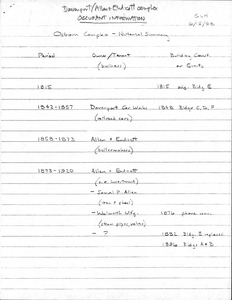 Davenport/Allen+Endicott complex
OCCUPANT INFORMATION
Osborn Complex - Historical Summary
Period Owner/Tenant Building Constr.
(business) or Events
1815 1815 orig. Bldg E
1842-1857 Davenport Car Works 1848 Bldgs C, D, F
(railroad cars)
1858-1873 Allen + Endicott
(boilermakers)
1873-1920 Allen + Endicott
- Samuel P. Allen
- Walworth Mfg. 1876 phone
- ? 1882 Bldg. E replaced
1886 Bldgs A+B